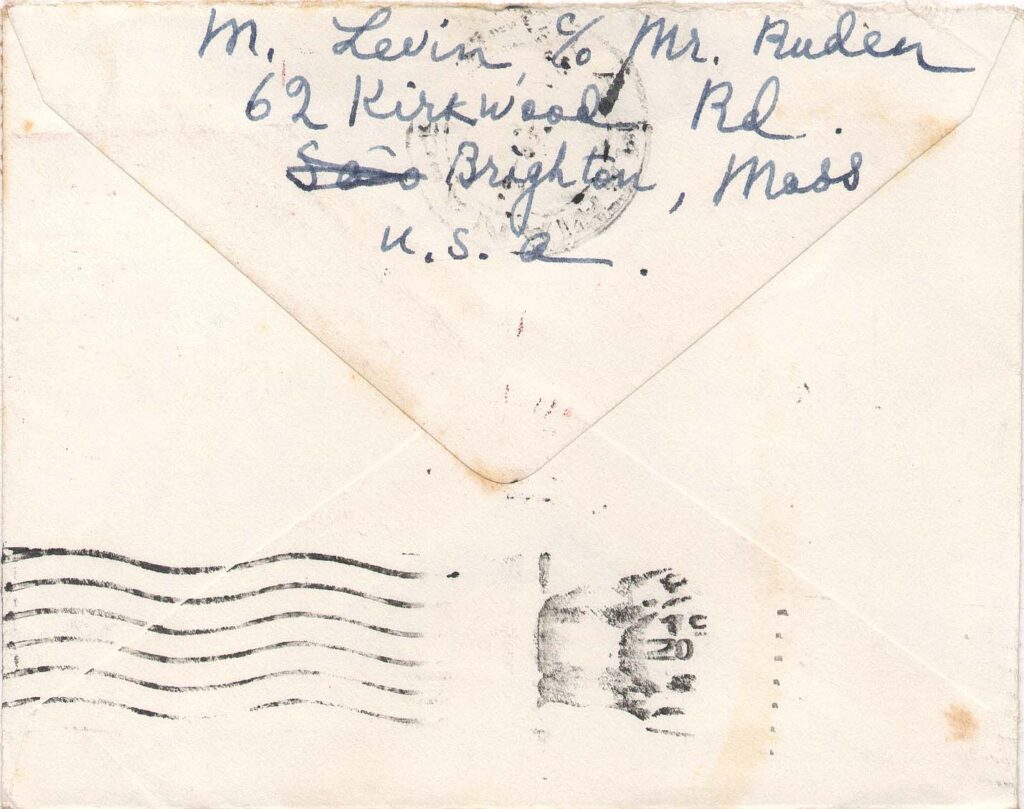 M. Levin, c/o Mr. Ruden
62 Kirkwood Rd.
São Brighton, Mass
U.S.A.